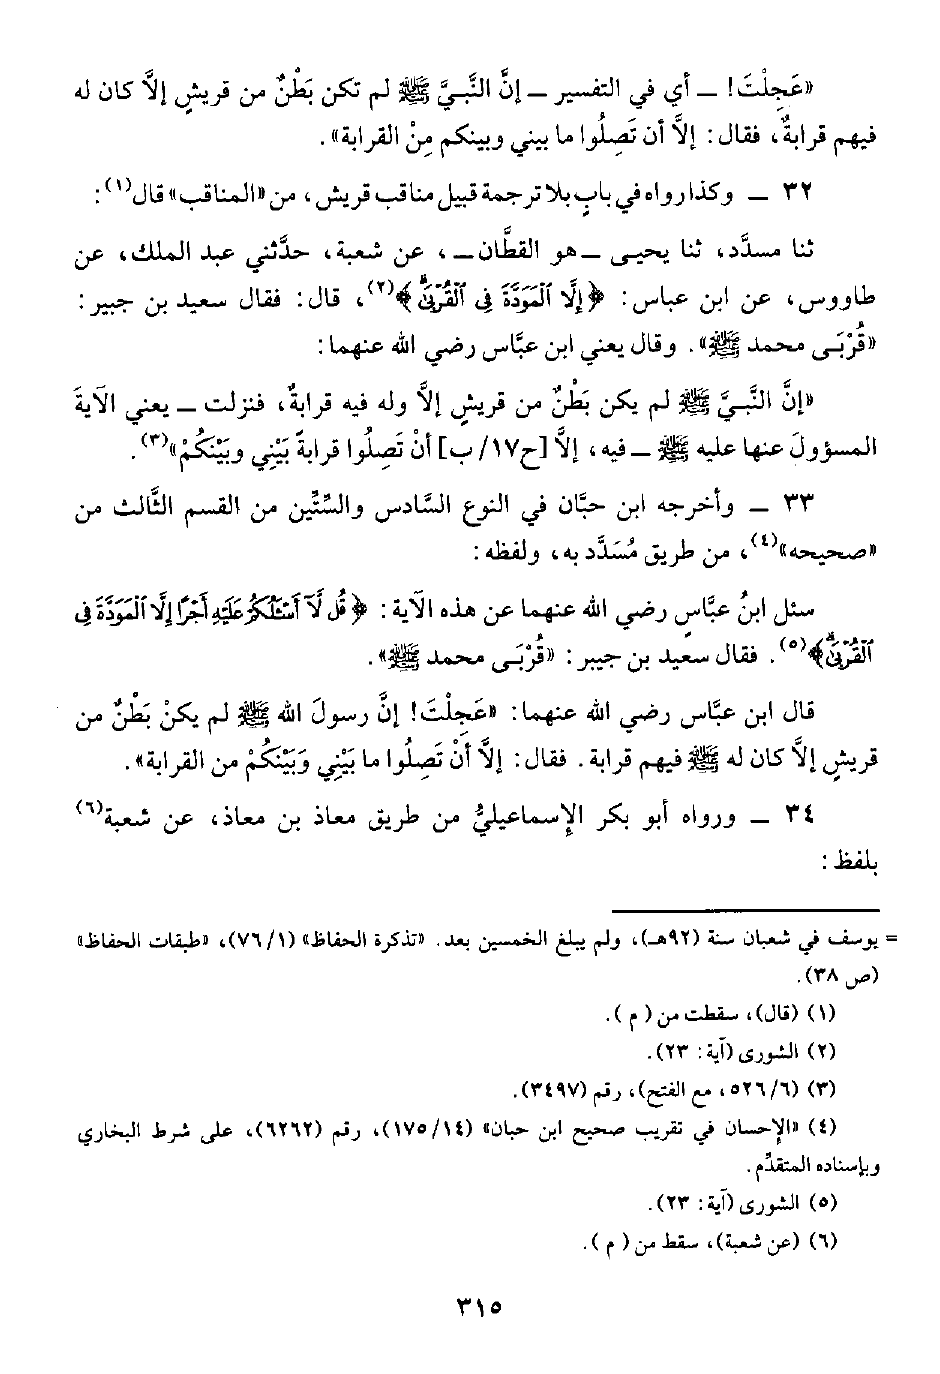 «عَجِلْتَ! ـ أي في التفسير ـ إنَّ النَّبيَّ ﷺ لم تكن بَطْنٌ من قريشٍ إلاَّ كان له
فيهم قرابةٌ، فقال: إلاَّ أن تَصِلُوا ما بيني وبينكم مِنْ القرابة».
٣٢ ـ وكذا رواه في بابٍ بلا ترجمة قبيل مناقب قريش، من «المناقب» قال(١):
ثنا مسدَّد، ثنا يحيى ـ هو القطَّان ـ، عن شعبة، حدَّثني عبد الملك، عن
طاووس، عن ابن عباس: ﴿إِلَّا ٱلْمَوَدَّةَ فِى ٱلْقُرْبَىٰ﴾(٢)، قال: فقال سعيد بن جبير:
«قُرْبَى محمد ﷺ». وقال يعني ابن عبَّاس رضي الله عنهما:
«إنَّ النَّبيَّ ﷺ لم يكن بَطْنٌ من قريشٍ إلاَّ وله فيه قرابةٌ، فنزلت ـ يعني الآيةَ
المسؤولَ عنها عليه ﷺ ـ فيه، إلاَّ [ح١٧/ ب] أنْ تَصِلُوا قرابةً بَيْنِي وبَيْنَكُمْ»(٣).
٣٣ ـ وأخرجه ابن حبَّان في النوع السَّادس والسِّتِّين من القسم الثَّالث من
«صحيحه»(٤)، من طريق مُسَدَّد به، ولفظه:
سئل ابنُ عبَّاسٍ رضي الله عنهما عن هذه الآية: ﴿قُل لَّآ أَسْـَٔلُكُمْ عَلَيْهِ أَجْرًا إِلَّا ٱلْمَوَدَّةَ فِى
ٱلْقُرْبَىٰ﴾(٥). فقال سعيد بن جبير: «قُرْبَى محمد ﷺ».
قال ابن عبَّاس رضي الله عنهما: «عَجِلْتَ! إنَّ رسولَ الله ﷺ لم يكنْ بَطْنٌ من
قريشٍ إلاَّ كان له ﷺ فيهم قرابة. فقال: إلاَّ أنْ تَصِلُوا ما بَيْنِي وَبَيْنَكُمْ من القرابة».
٣٤ ـ ورواه أبو بكر الإسماعيليُّ من طريق معاذ بن معاذ، عن شعبة(٦)
بلفظ:
= يوسف في شعبان سنة (٩٢هـ)، ولم يبلغ الخمسين بعد. «تذكرة الحفاظ» (٧٦/١)، «طبقات الحفاظ»
(ص ٣٨).
(١) (قال)، سقطت من ( م ).
(٢) الشورى (آية: ٢٣).
(٣) (٥٢٦/٦، مع الفتح)، رقم (٣٤٩٧).
(٤) «الإحسان في تقريب صحيح ابن حبان» (١٧٥/١٤)، رقم (٦٢٦٢)، على شرط البخاري
وبإسناده المتقدِّم.
(٥) الشورى (آية: ٢٣).
(٦) (عن شعبة)، سقط من ( م ).
٣١٥